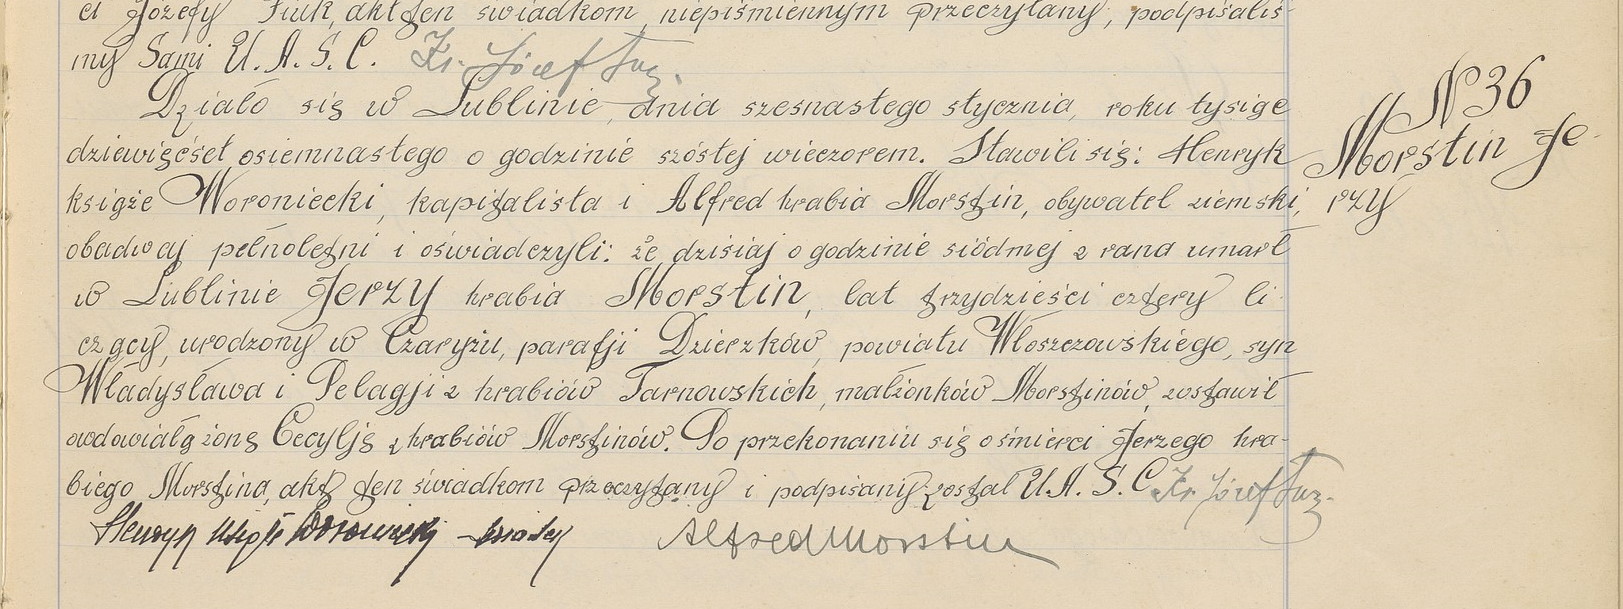 ci Józefy Fiuk, akt ten świadkom niepiśmiennym przeczytany, podpisaliś-
my Sami U. A. S. C. Ks. Józef
Działo się w Lublinie, dnia szesnastego stycznia, roku tysiąc
dziewięćset osiemnastego o godzinie szóstej wieczorem. Stawili się: Henryk
książe Woroniecki, kapitalista i Alfred hrabia Morstin, obywatel ziemski,
obadwaj pełnoletni i oświadczyli: że dzisiaj o godzinie siódmej z rana umarł
w Lublinie Jerzy hrabia Morstin, lat trzydzieści cztery li-
czący, urodzony w Czaryżu, parafji Dzierzków, powiatu Włoszczowskiego, syn
Władysława i Pelagji z hrabiów Tarnowskich, małżonków Morstinów, zostawił
owdowiałą żonę Cecylję z hrabiów Morstinów. Po przekonaniu się o śmierci Jerzego hra-
biego Morstina, akt ten świadkom przeczytany i podpisany został U. A. S. C. Ks. Józef
Henryk Woroniecki
Alfred Morstin
N 36
Morstin Je-
rzy